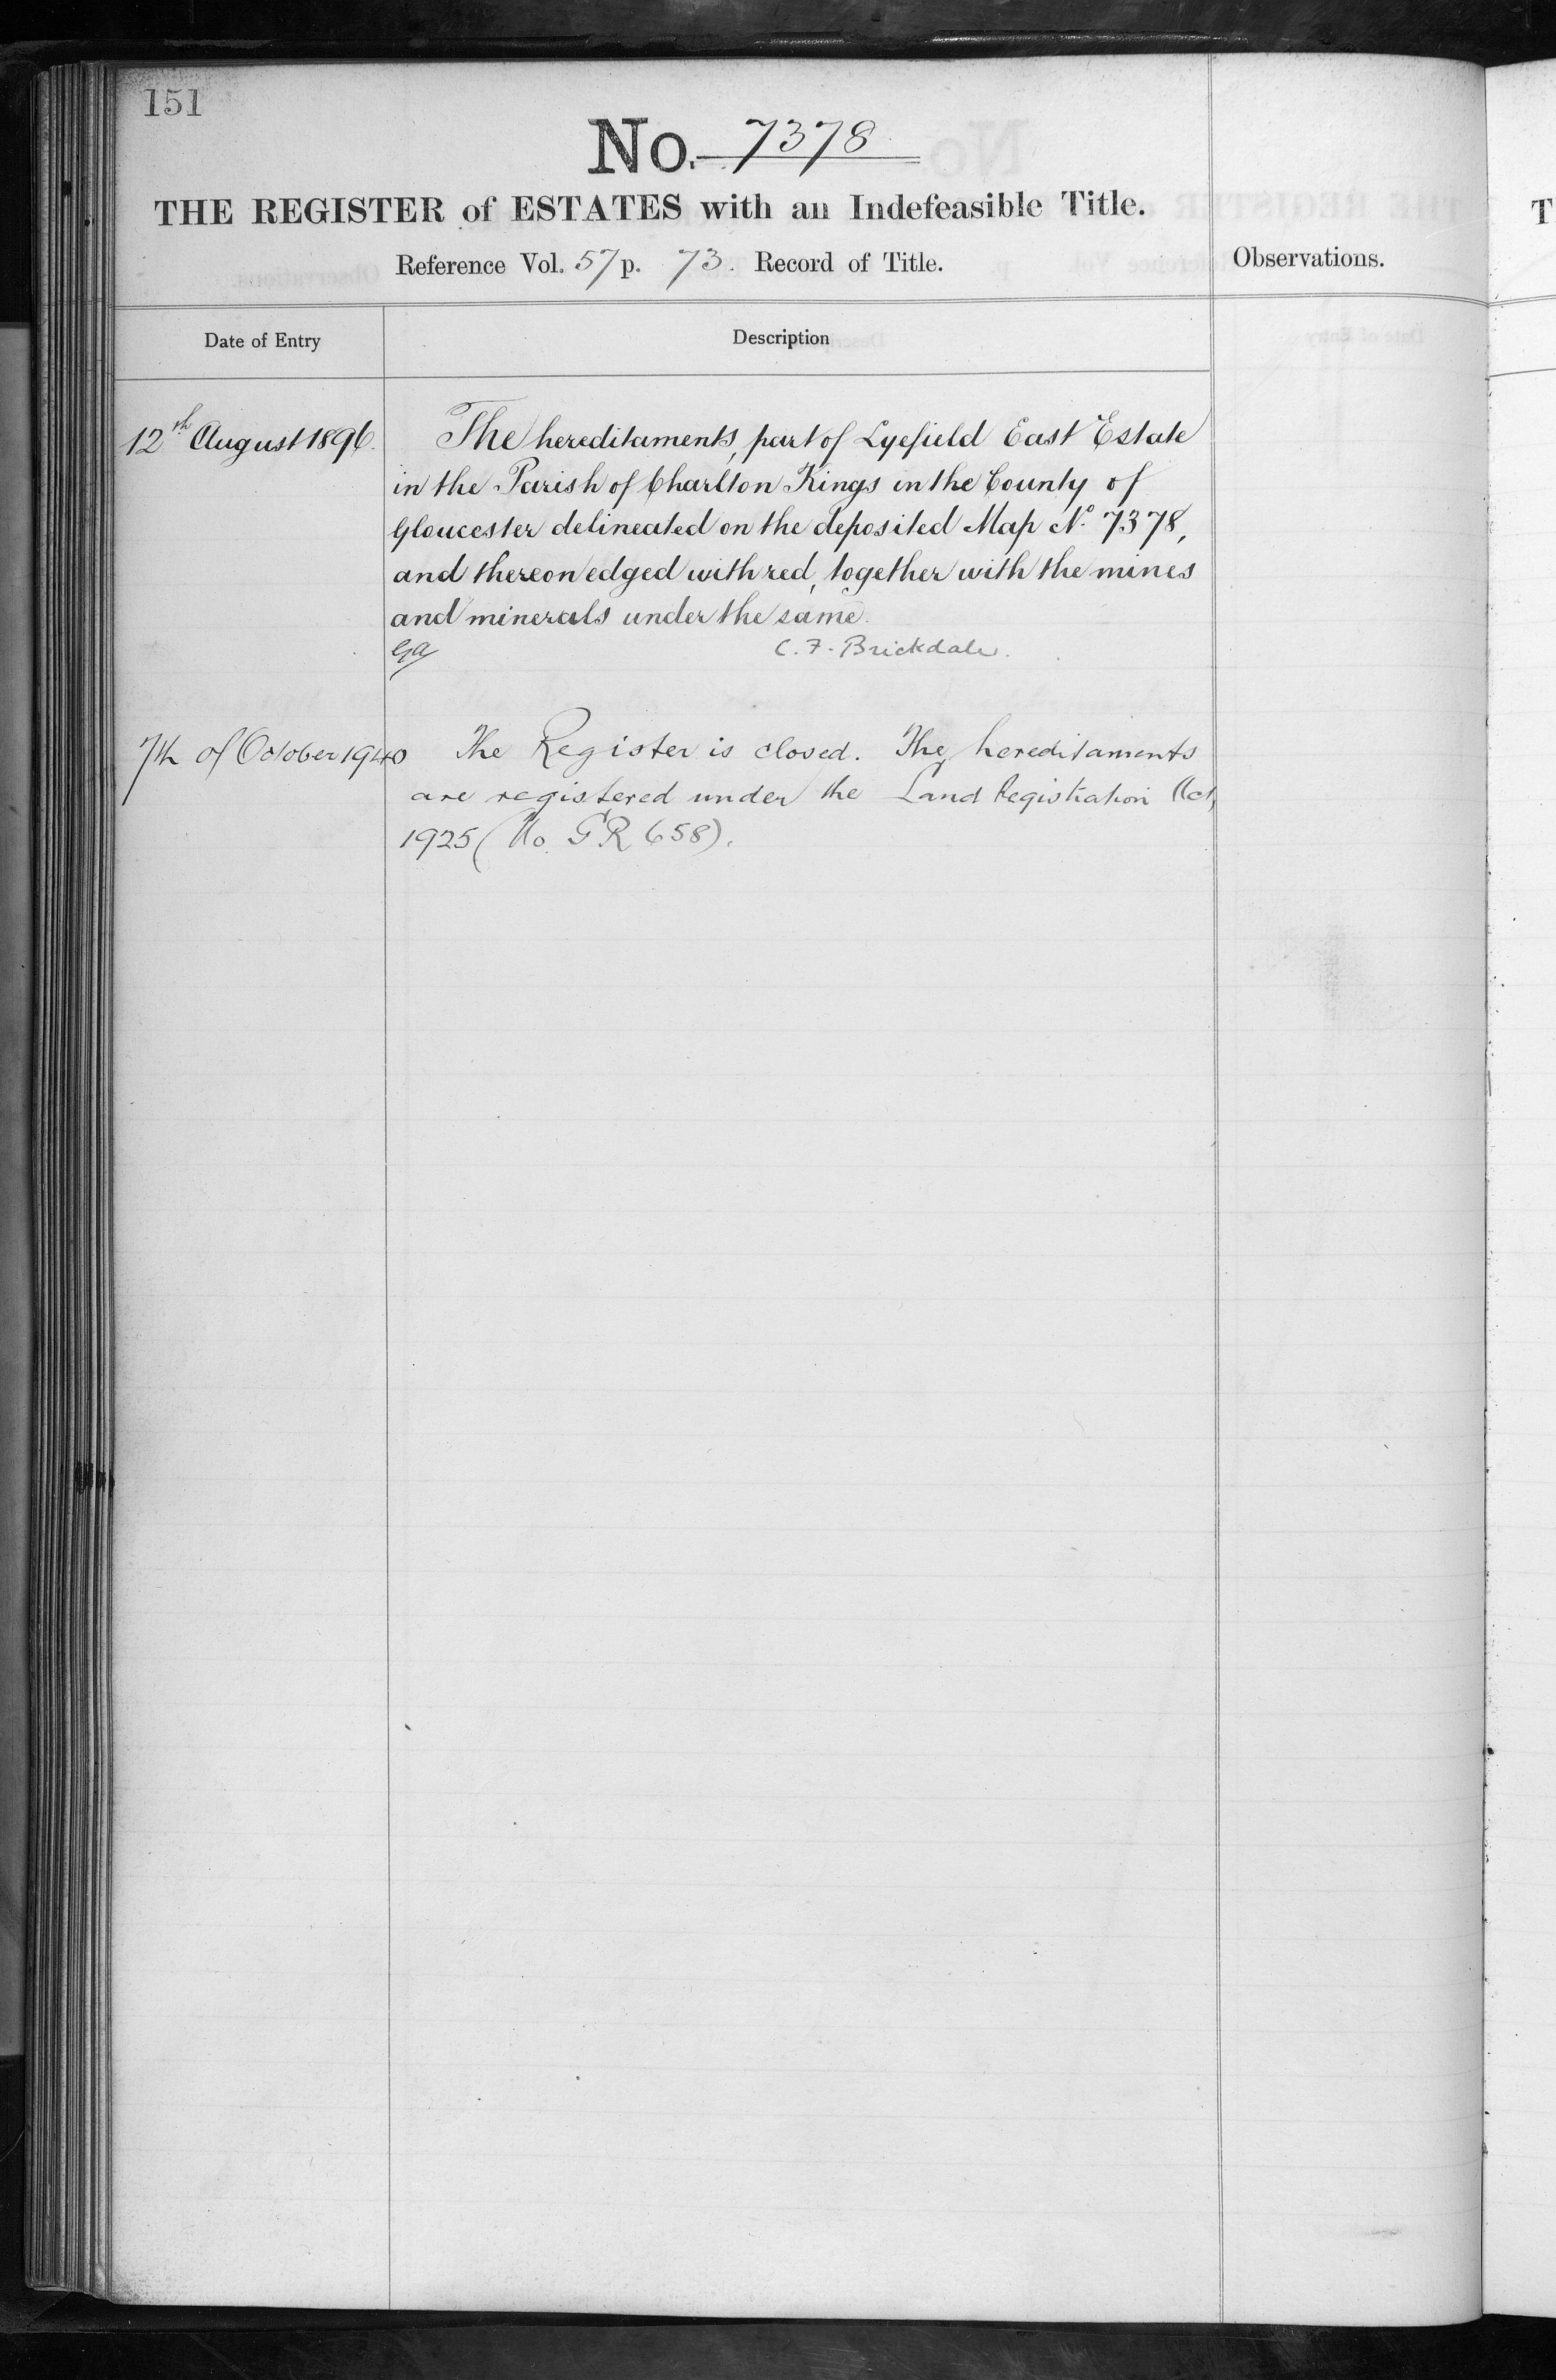 151
No. 7378
THE REGISTER of ESTATES with an Indefeasible Title.
Reference Vol. 57 p. 73. Record of Title.
Observations.
Date of Entry
Description
12th August 1896.
The hereditaments, part of Lyefield East Estate
in the Parish of Charlton Kings in the County of
Gloucester delineated on the deposited Map No. 7378,
and thereon edged with red, together with the mines
and minerals under the same.
C. F. Brickdale.
7th of October 1940
The Register is closed. The hereditaments
are registered under the Land Registration Act,
1925 (No. GR 658).
T